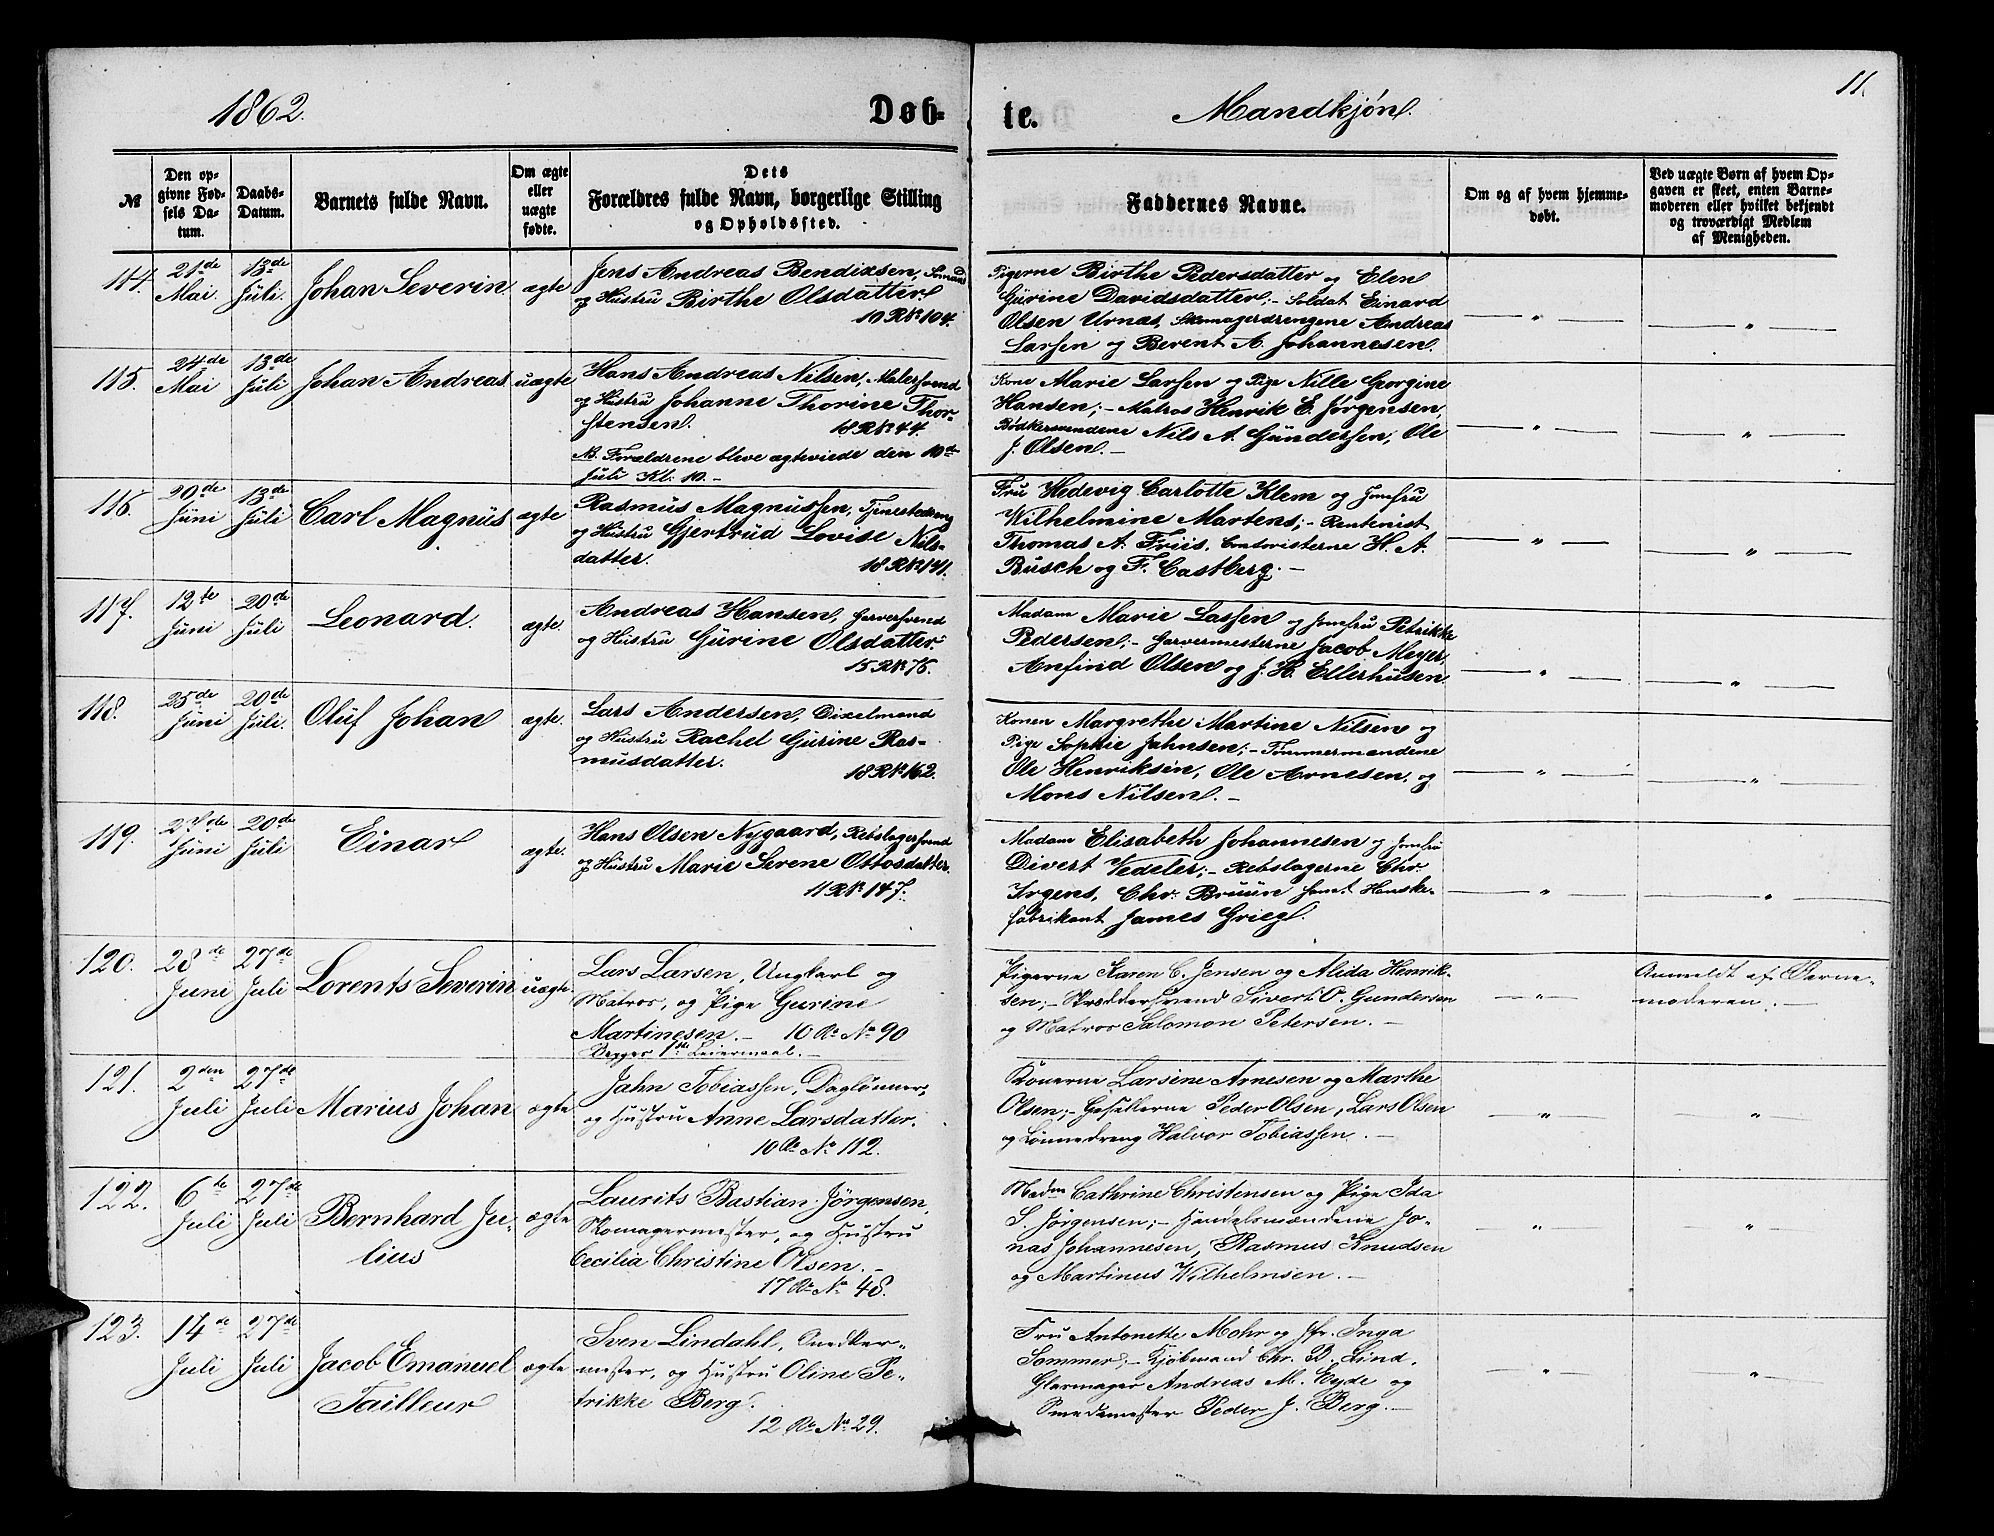 1862.
Døb-
te.
Mandkjøn.
11.
№
Den op-
givne Fød-
sels Da-
tum.
Daabs-
Datum.
Barnets fulde Navn.
Om ægte
eller
uægte
fødte.
Dets
Forældres fulde Navn, borgerlige Stilling
og Opholdssted.
Faddernes Navne.
Om og af hvem hjemme-
døbt.
Ved uægte Børn af hvem Op-
gaven er skeet, enten Barne-
moderen eller hvilket bekjendt
og troværdigt Medlem
af Menigheden.
114.
21de
Mai.
13de
Juli.
Johan Severin.
ægte
Jens Andreas Bendixsen, Sømand
og Hustru Birthe Olsdatter.
10 R№ 104.
Pigerne Birthe Pedersdatter og Elen
Gurine Davidsdatter; - Soldat Einard
Olsen Urnæs, Skomagerdrengene Andreas
Larsen og Berent A. Johannesen.
"
"
115.
24de
Mai
13de
Juli
Johan Andreas
uægte
Hans Andreas Nilsen, Malersvend
og Hustru Johanne Thorine Thor-
stensen. 18 R№ 44.
NB. Forældrene bleve ægteviede den 10de
Juli Kl. 10. -
Kone Marie Larsen og Pige Nille Georgine
Hansen; - Matros Henrik E. Jørgensen,
Bødkersvendene Nils A. Gundersen, Ole
J. Olsen. -
"
"
116.
20de
Juni
13de
Juli
Carl Magnus
ægte
Rasmus Magnussen, Tjenestedreng
og Hustru Gjertrud Lovise Nils-
datter. 18 R№ 141.
Fru Hedevig Carlotte Klem og Jomfru
Wilhelmine Martens; - Rentenist
Thomas A. Friis, Contoristerne H. A.
Busch og F. Castberg. -
"
"
117.
12te
Juni
20de
Juli
Leonard.
ægte.
Andreas Hansen, Garversvend
og Hustru Gurine Olsdatter.
15 R№ 75.
Madam Marie Lassen og Jomfru Petrikke
Pedersen; - Garvermesterne Jacob Meyer,
Anfind Olsen og J. H. Ellerhusen.
"
"
118.
25de
Juni
20de
Juli.
Oluf Johan
ægte.
Lars Andersen, Dixelmand
og Hustru Rachel Gurine Ras-
musdatter. 18 R№ 162.
Konen Margrethe Martine Nilsen og
Pige Sophie Jahnsen; - Tømmermændene
Ole Henriksen, Ole Arnesen, og
Mons Nilsen. -
"
"
119.
27de
Juni
20de
Juli
Einar
ægte.
Hans Olsen Nygaard, Rebslagersvend
og Hustru Marie Serene Ottosdatter.
11 R№ 147.
Madam Elisabeth Johannesen og Jomfru
Divert Vedeler; - Rebslagerne Chr.
Irgens, Chr. Bruun samt Hanske-
fabrikant James Grieg.
"
"
120.
28de
Juni
27de
Juli
Lorents Severin
uægte
Lars Larsen, Ungkarl og
Matros, og Pige Gurine
Martinesen. - 10 R. № 90
Begges 1ste Leiermaal. -
Pigerne Karen C. Jensen og Alida Henrik-
sen; - Skræddersvend Sivert O. Gundersen
og Matros Salomon Petersen. -
"
Anmeldt af Barne-
moderen. -
121.
2den
Juli
27de
Juli
Marius Johan
ægte
Jahn Tobiassen, Daglønner,
og Hustru Anne Larsdatter.
10 R. № 112.
Konerne Larsine Arnesen og Marthe
Olsen; - Gesellerne Peder Olsen, Lars Olsen
og Lønnedreng Halvor Tobiassen. -
"
"
122.
6te
Juli
27de
Juli
Bernhard Ju-
lius
ægte
Laurits Bastian Jörgensen,
Skomagermester, og Hustru
Cecilia Christine Olsen. -
17 R. № 48.
Madm Cathrine Christensen og Pige Ida
S. Jørgensen; - Handelsmændene Jo-
nas Johannesen, Rasmus Knudsen
og Martinus Wilhelmsen. -
"
"
123.
14de
Juli
27de
Juli
Jacob Emanuel
Tailleur
ægte
Sven Lindahl, Snedker-
mester, og Hustru Oline Pe-
trikke Berg.
12 R. № 29.
Fru Antonette Mohr og Jfr. Inga
Sommer; - Kjøbmand Chr. B. Lind,
Glarmager Andreas M. Hyde og
Smedemester Peder J. Berg. -
"
"